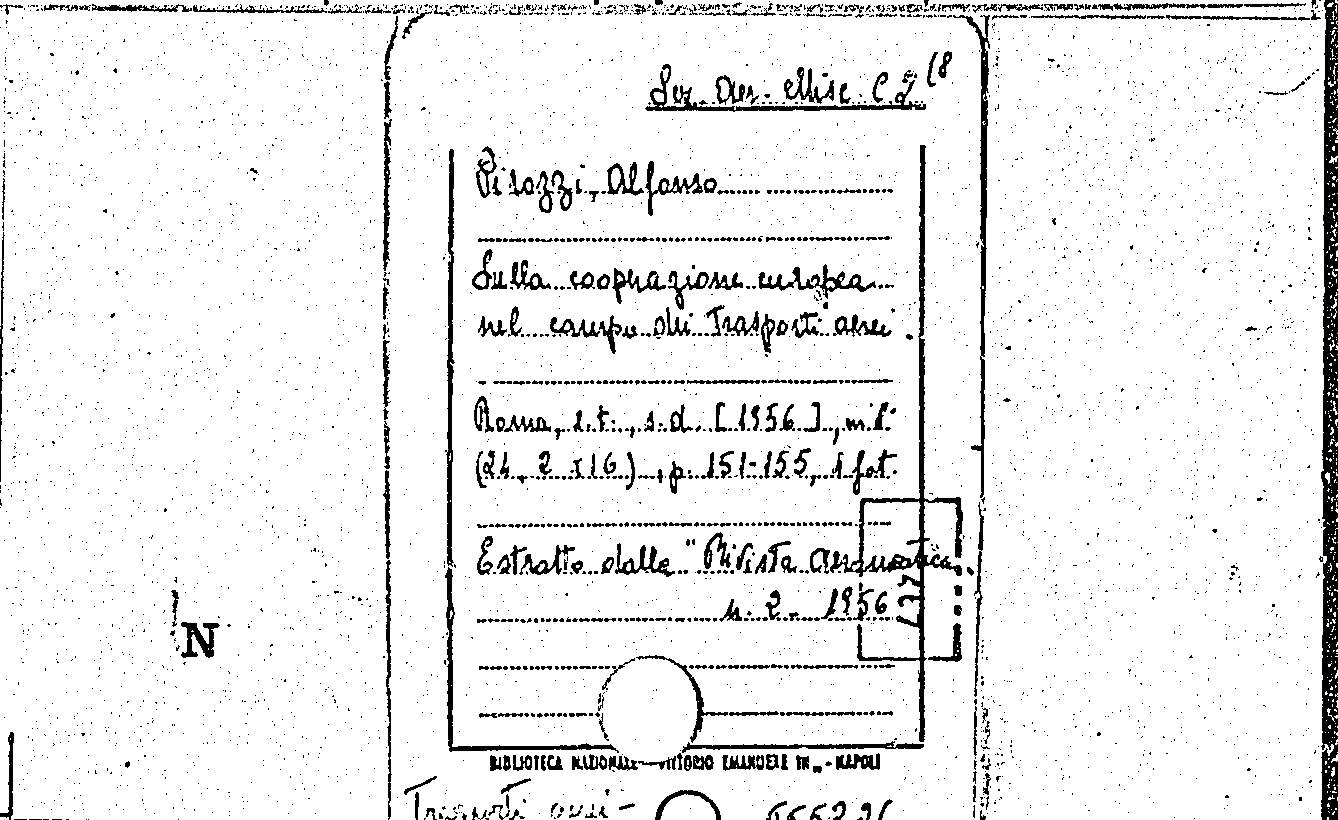 Sez. Aer. Misc. C 2 (8
Pirozzi, Alfonso
Sulla cooperazione europea
nel campo dei Trasporti aerei.
Roma, s.t., s.d. [1956], in 8°
(24,2 x 16), p. 151-155, 1 fot.
Estratto dalla "Rivista Aeronautica.
n. 2 - 1956
N
BIBLIOTECA NAZIONALE VITTORIO EMANUELE III - NAPOLI
Trasporti aerei -